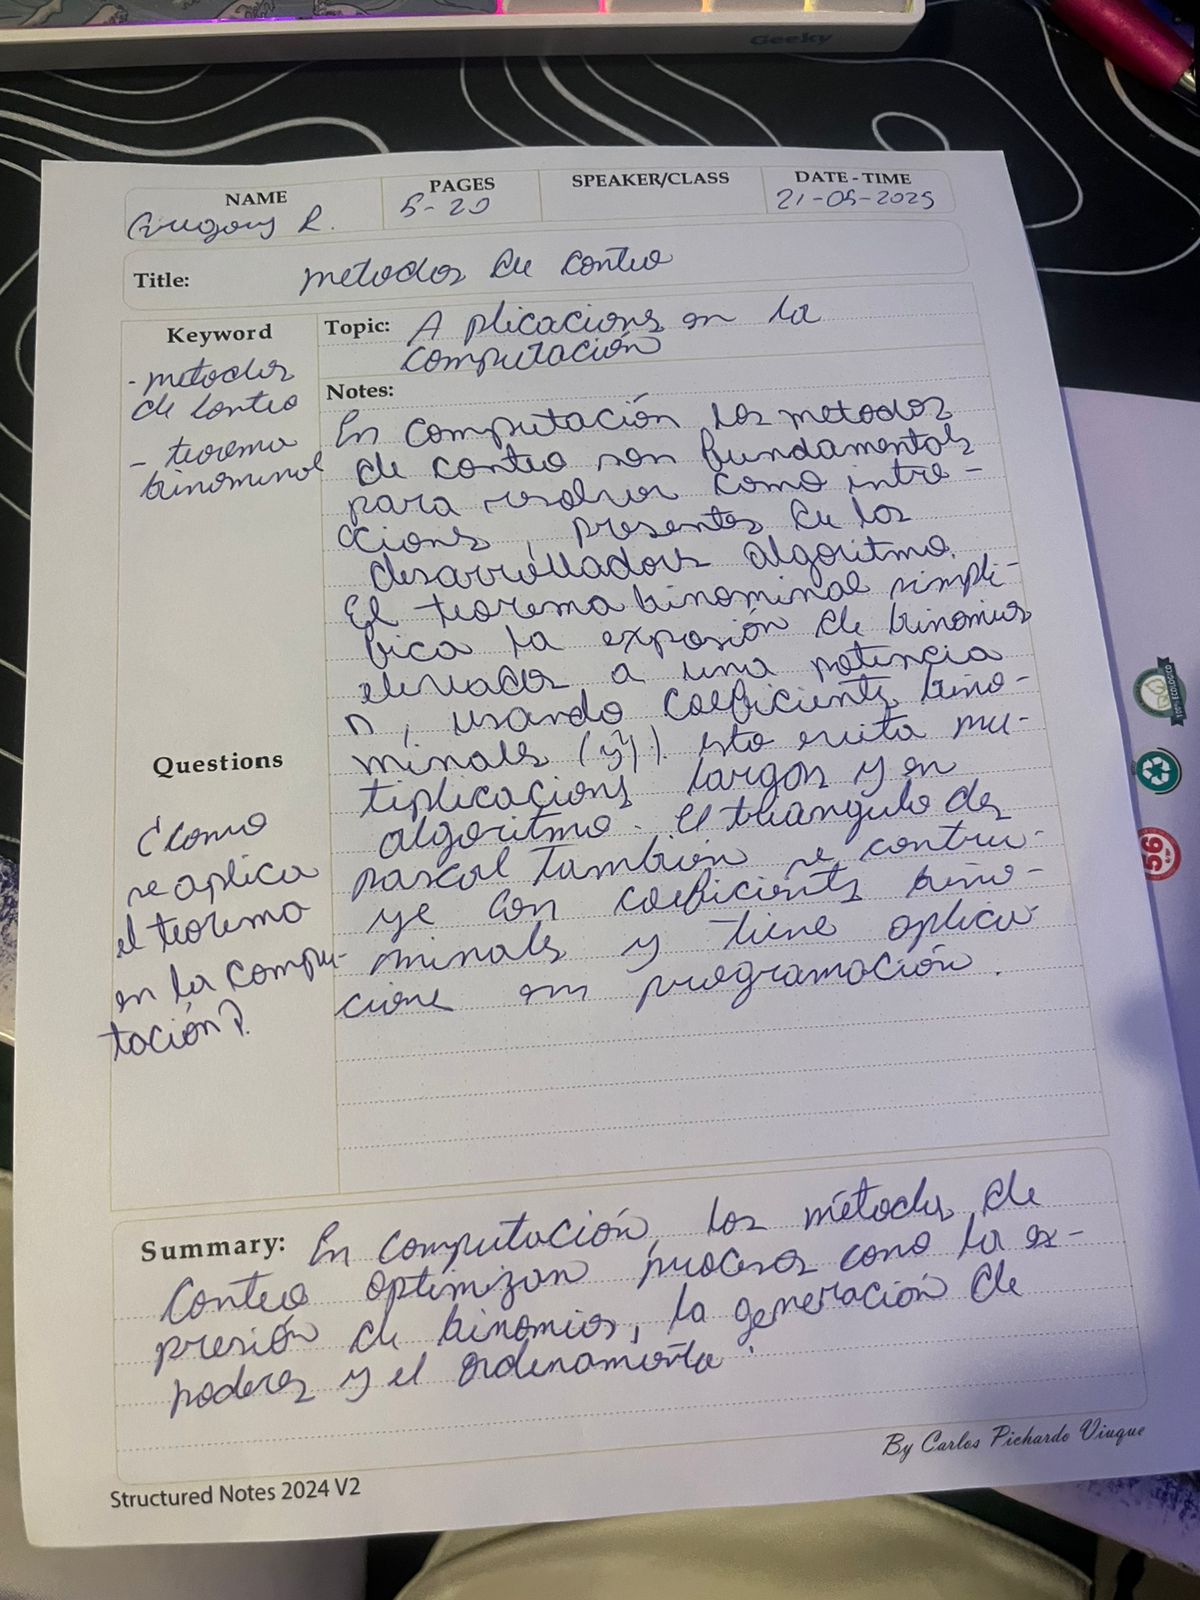 Geeky
NAME
Gregory R.
PAGES
5-20
SPEAKER/CLASS
DATE-TIME
21-05-2025
Title: metodos de conteo
Keyword
- metodos
de conteo
- teorema
binominal
Topic: Aplicacions en la
computación
Notes:
En computación los metodos
de conteo son fundamentals
para resolver como intre-
ccions, presentes en los
desarrolladors algoritmo.
El teorema binominal simpli-
fica la exposión de binomios
elevados a una potencia
n, usando coeficients bino-
minals ( ). esto evita mu-
tiplicacions largas y en
algoritmo. el triangulo de
pascal también se contru-
ye con coeficients bino-
minals y tiene aplica-
cione en programación.
Questions
¿Como
se aplica
el teorema
en la compu-
tación?
Summary: En computación, los métodos de
conteo optimizan procesos como la ex-
presión de binomios, la generación de
poderes y el ordenamiento.
By Carlos Pichardo Viuque
Structured Notes 2024 V2
100% ECOLOGICO
56